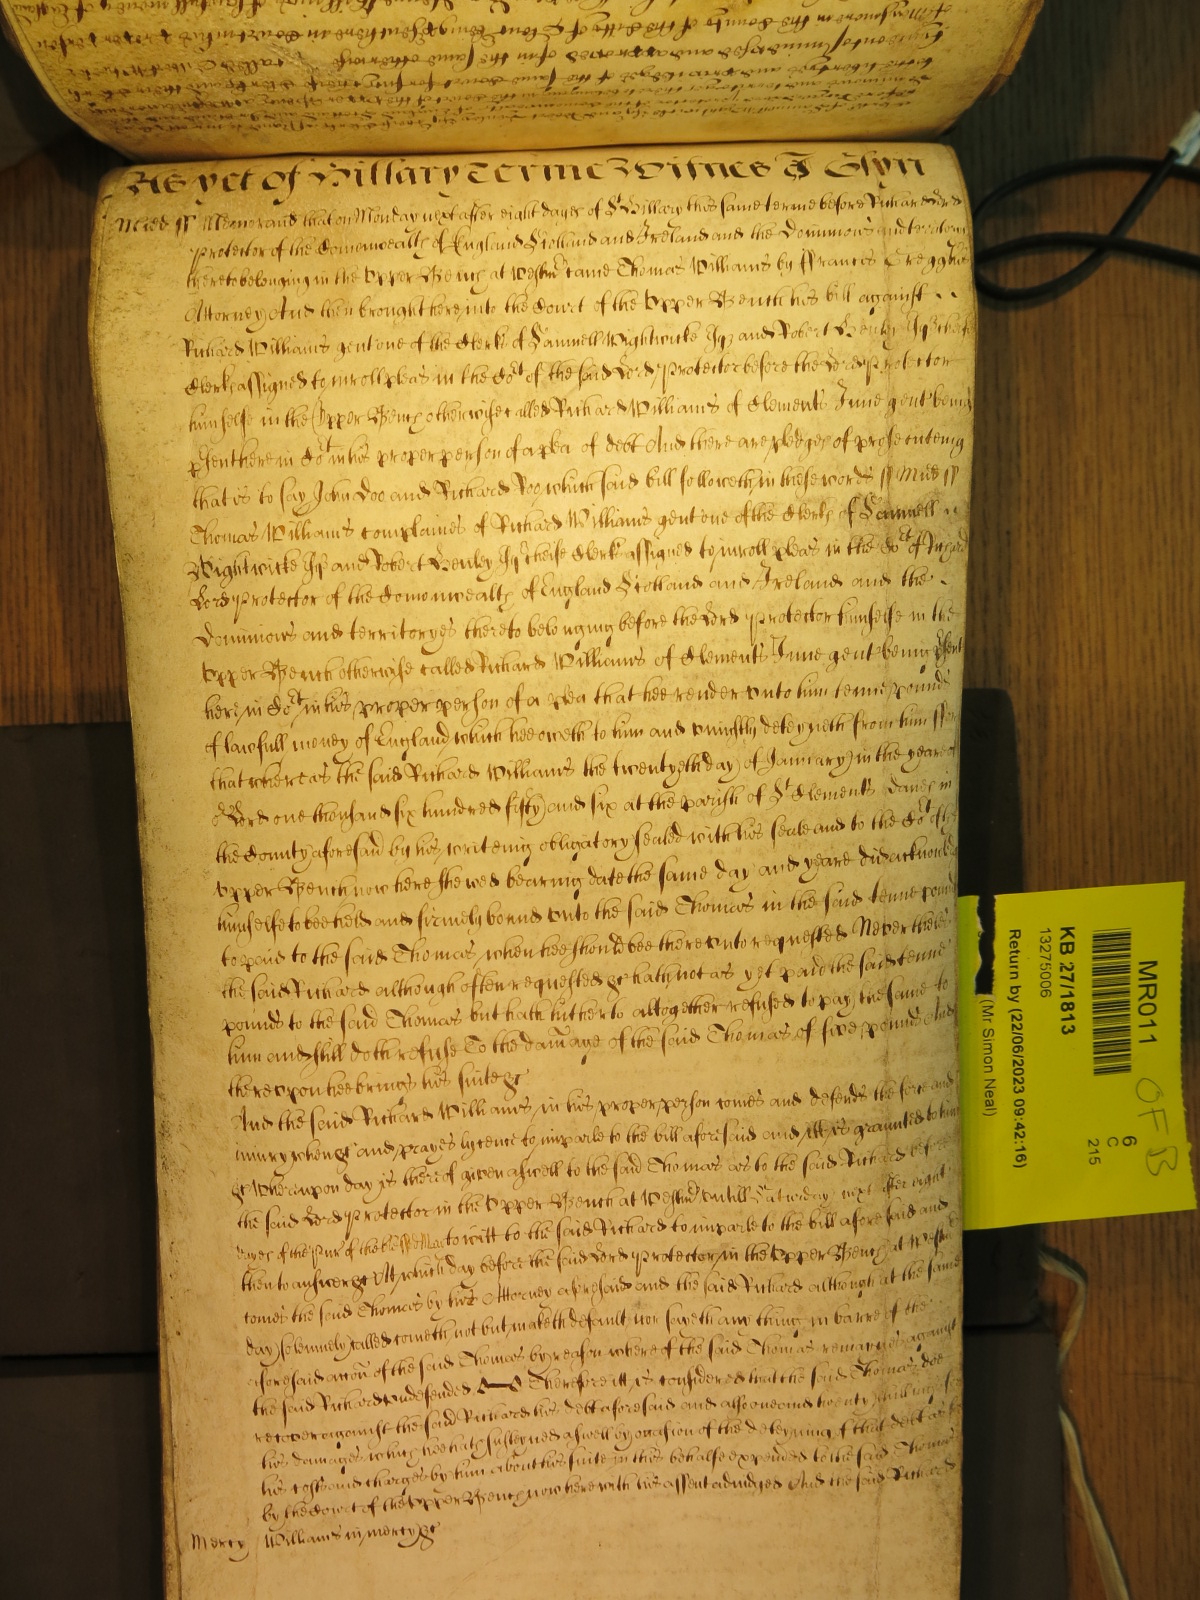 As yet Of Hillary Terme Witnes J Glyn
Midd ss Memorand that on Monday next after eight dayes of St Hillary this same terme before Richard Lord
Protector of the Comonwealth of England Scotland and Ireland and the Dominions and territories
thereto belonging in the Upper Bench at Westmr came Thomas Williams by Francis Gregg his
Attorney And then brought here into the Court of the Upper Bench his bill against
Richard Williams gent one of the Clerks of Samuell Wightwicke Esq and Robert Henley Esq cheife
Clerke assigned to inroll pleas in the Cort of the said Lord Protector before the Lord Protector
himselfe in the Upper Bench otherwise called Richard Williams of Clements Inne gent being
psent here in Cort in his proper person of a plea of debt And there are pledges of prosecuteing
that is to say John Doo and Richard Roo which said bill followeth in these words ss Midd ss
Thomas Williams complaines of Richard Williams gent one of the Clerks of Samuell
Wightwicke Esq and Robert Henley Esq cheife Clerk assigned to inroll pleas in the Cort of Richard
Lord Protector of the Comonwealth of England Scotland and Ireland and the
Dominions and territoryes thereto belonging before the Lord Protector himselfe in the
Upper Bench otherwise called Richard Williams of Clements Inne gent being psent
here in Cort in his proper person of a plea that hee render unto him tenne pounds
of lawfull money of England which hee oweth to him and uniustly deteyneth from him For
that whereas the said Richard Williams the twentyeth day of January in the yeare of
or Lord one thousand six hundred fifty and six at the parish of St Clements Danes in
the County aforesaid by his writeing obligatory sealed with his seale and to the Cort of the
Upper Bench now here shewed bearing date the same day and yeare did acknowledge
himselfe to bee held and firmely bound unto the said Thomas in the said tenne pounds
to paid to the said Thomas when hee should bee thereunto requested Neverthelesse
the said Richard although often requested &c hath not as yet paid the said tenne
pounds to the said Thomas but hath hitherto altogether refused to pay the same to
him and still doth refuse To the damage of the said Thomas of five pounds And
thereupon hee brings his suite &c
And the said Richard Williams in his proper person comes and defends the force and
iniury when &c and prayes lycence to imparle to the bill aforesaid and itt is graunted to him
&c Whereupon day is thereof given aswell to the said Thomas as to the said Richard before
the said Lord Protector in the Upper Bench at Westmr untill Saturday next after eight
dayes of the Pur of the to witt to the said Richard to imparle to the bill aforesaid and
then to answer &c At which day before the said Lord Protector in the Upper Bench at Westmr
comes the said Thomas by his Attorney aforesaid and the said Richard although at the same
day solemnely called cometh not but maketh default nor sayeth any thing in barre of the
aforesaid accon of the said Thomas by reason whereof the said Thomas remaynes against
the said Richard undefended Therefore itt is considered that the said Thomas doe
recover against the said Richard his debt aforesaid and alsoe one and twenty shillings for
his damages which hee hath susteyned aswell by occasion of the deteyning of that debt as for
his costs and charges by him about his suite in this behalfe expended to the said Thomas
by the Court of the Upper Bench now here with his assent adiudged And the said Richard
Mercy Williams in mercy &c
MR011
KB 27/1813
13275006
Return by (22/06/2023 09:42:16)
(Mr Simon Neal)
6
C
215
OFB